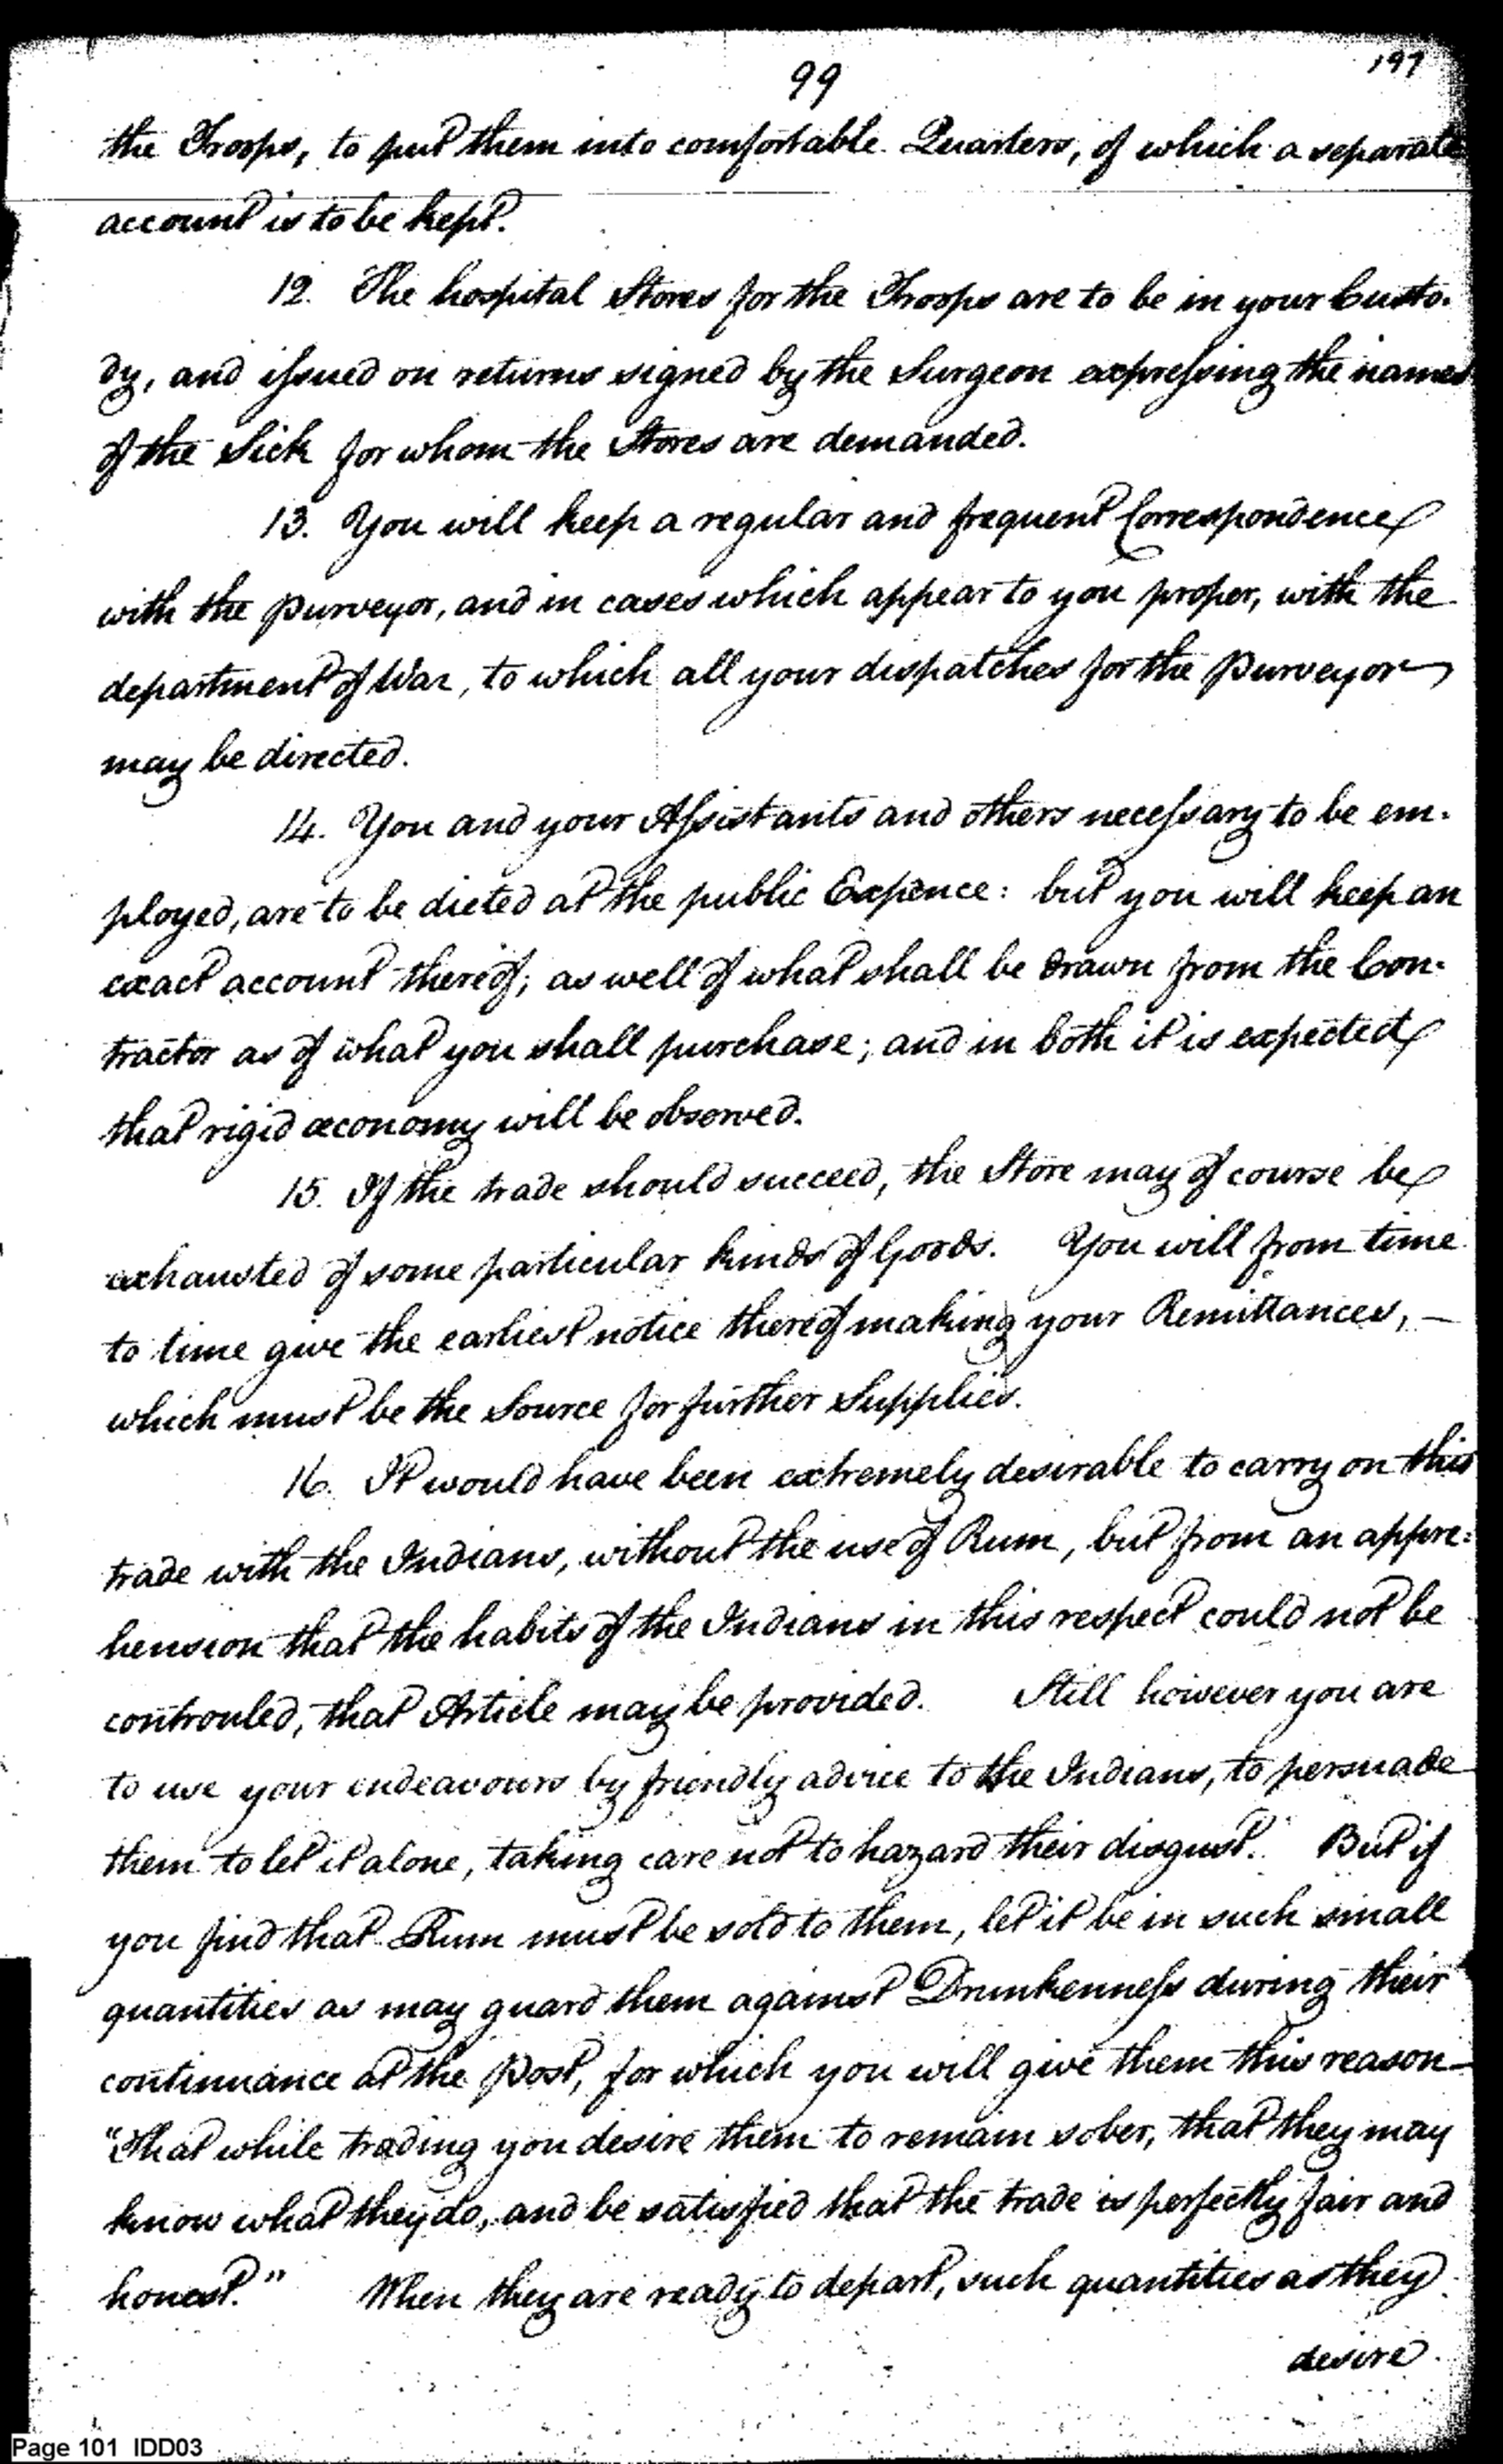 99
197
the Troops, to put them into comfortable Quarters, of which a separate
account is to be kept.
12. The hospital Stores for the Troops are to be in your Custo-
dy, and issued on returns signed by the Surgeon expressing the names
of the Sick for whom the Stores are demanded.
13. You will keep a regular and frequent Correspondence
with the purveyor, and in cases which appear to you proper, with the
department of War, to which all your dispatches for the purveyor
may be directed.
14. You and your Assistants and others necessary to be em-
ployed, are to be dieted at the public Expence: but you will keep an
exact account thereof; as well of what shall be drawn from the Con-
tractor as of what you shall purchase; and in both it is expected
that rigid œconomy will be observed.
15. If the trade should succeed, the Store may of course be
exhausted of some particular kinds of Goods. You will from time
to time give the earliest notice thereof making your Remittances, —
which must be the Source for further Supplies.
16. It would have been extremely desirable to carry on this
trade with the Indians, without the use of Rum, but from an appre=
hension that the habits of the Indians in this respect could not be
controuled, that Article may be provided. Still however you are
to use your endeavours by friendly advice to the Indians, to persuade
them to let it alone, taking care not to hazard their disgust. But if
you find that Rum must be sold to them, let it be in such small
quantities as may guard them against Drunkenness during their
continuance at the post, for which you will give them this reason—
"That while trading you desire them to remain sober, that they may
know what they do, and be satisfied that the trade is perfectly fair and
honest." When they are ready to depart, such quantities as they
desire
Page 101 IDD03